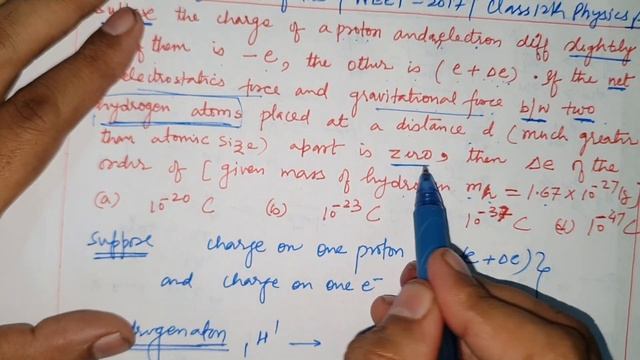 of the | NEET-2017 | Class 12th Physics
Suppose the charge of a proton and electron diff slightly
of them is -e, the other is (e+Δe). If the net
electrostatics force and gravitational force b/w two
hydrogen atoms placed at a distance d (much greater
than atomic size) apart is zero, then Δe of the
order of [given mass of hydrogen mh = 1.67×10-27kg
(a) 10-20 C (b) 10-23 C 10-37 C (d) 10-47 C
Suppose charge on one proton (e+Δe)}
and charge on one e-
Hydrogen atom, 1H1 →